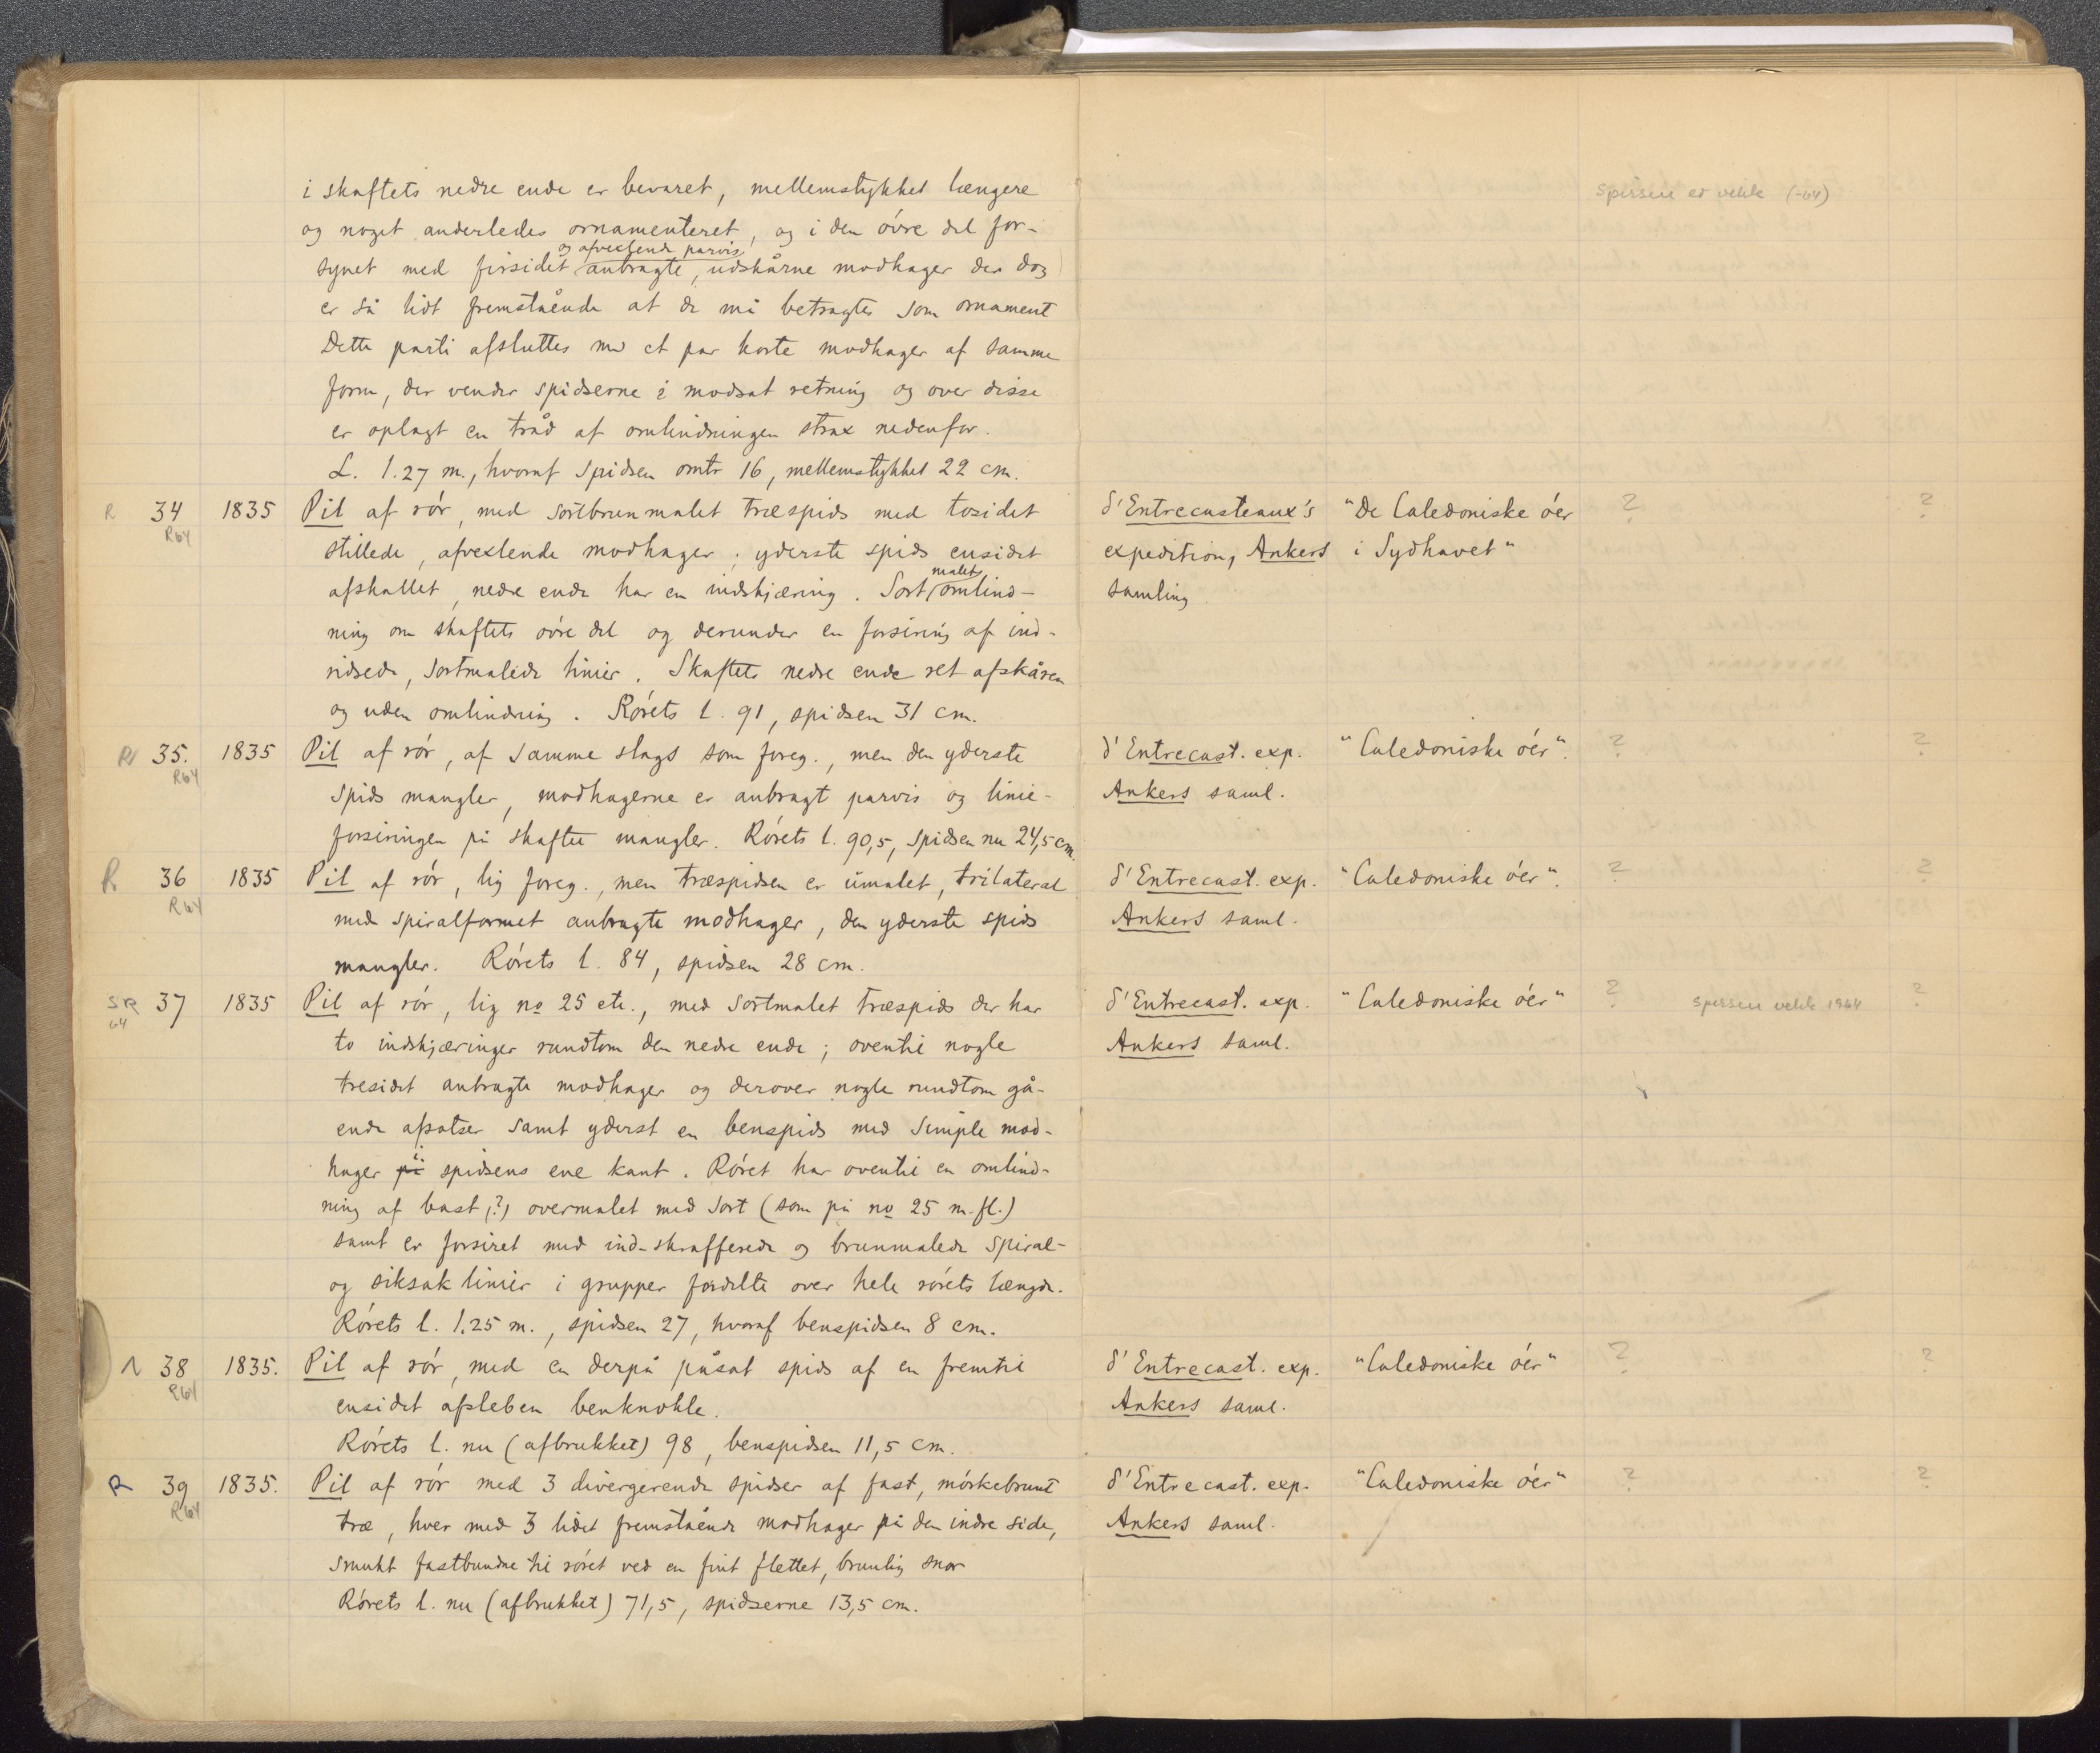 i skaftets nedre ende er bevaret, mellemstykket længere
og noget anderledes ornamenteret, og i den óvre del for-
synet med firsidet og afvexlende parvis anbragte, udskårne modhager der dog
er så lidt fremstående at de må betragtes som ornament
Dette parti afsluttes m&d et par korte modhager af samme
form, der vender spidserne i modsat retning og over disse
er oplagt en tråd af omvindningen strax nedenfor.
L. 1.27 m., hvoraf spidsen omtr 16, mellemstykket 22 cm.
spissen er vekk (-64)
R 34 1835 Pil af rór, med sortbrunmalet træspids med tosidet
R64
stillede, afvexlende modhager; yderste spids ensidet
afskallet, nedre ende har en indskjæring. Sortmalet omvind-
ning om skaftets óvre del og derunder en forsiring af ind-
ridsede, sortmalede linier. Skaftets nedre ende ret afskåren
og uden omvindning. Rórets l. 91, spidsen 31 cm.
d'Entrecasteaux's "De Caledoniske óer ? ?
expedition, Ankers i Sydhavet"
samling
R 35. 1835 Pil af rór, af samme slags som foreg., men den yderste
R64
spids mangler, modhagerne er anbragt parvis og linie-
forsiringen på skaftet mangler. Rórets l. 90,5, spidsen nu 24,5 cm.
d'Entrecast. exp. "Caledoniske óer". ? ?
Ankers saml.
R 36 1835 Pil af rór, lig foreg., men træspidsen er umalet, trilateral
R64
med spiralformet anbragte modhager, den yderste spids
mangler. Rórets l. 84, spidsen 28 cm.
d'Entrecast. exp. "Caledoniske óer". ? ?
Ankers saml.
SR 37 1835 Pil af rór, lig no 25 etc., med sortmalet træspids der har
64
to indskjæringer rundtom den nedre ende; oventil nogle
tresidet anbragte modhager og derover nogle rundtom gå-
ende afsatser samt yderst en benspids med simple mod-
hager i spidsens ene kant. Róret har oventil en omvind-
ning af bast(?) overmalet med sort (som på no 25 m.fl.)
samt er forsiret med ind-skrafferede og brunmalede spiral-
og siksak linier i grupper fordelte over hele rórets længde.
Rórets l. 1.25 m., spidsen 27, hvoraf benspidsen 8 cm.
d'Entrecast. exp. "Caledoniske óer" ? spissen vekk 1964 ?
Ankers saml.
38 1835. Pil af rór, med en derpå påsat spids af en fremtil
R64
ensidet afsleben benknokle.
Rórets l. nu (afbrukket) 98, benspidsen 11,5 cm.
d'Entrecast. exp. "Caledoniske óer" ? ?
Ankers saml.
R 39 1835. Pil af rór med 3 divergerende spidser af fast, mórkebrunt
R64
træ, hver med 3 lidet fremstående modhager på den indre side,
smukt fastbundne til róret ved en fint flettet, brunlig snor
Rórets l. nu (afbrukket) 71,5, spidserne 13,5 cm.
d'Entrecast. exp. "Caledoniske óer" ? ?
Ankers saml.